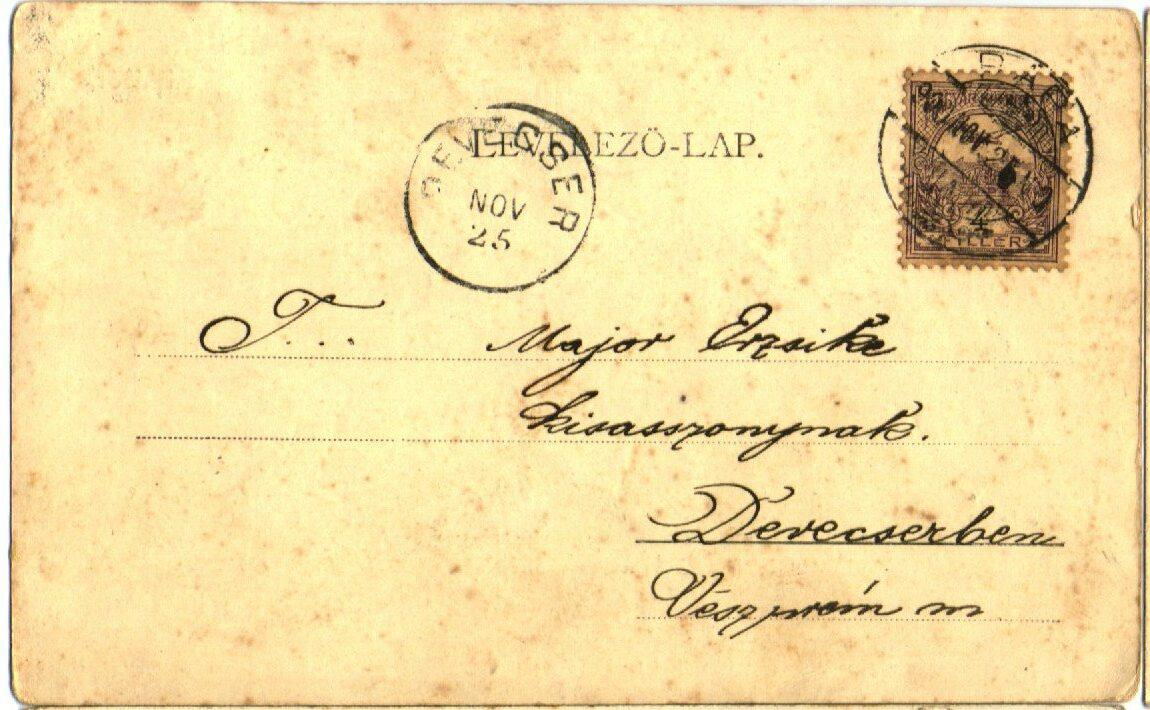 LEVELEZŐ-LAP.
DEVECSER
NOV
25
4
FILLÉR
T... Major Erzsike
kisasszonynak.
Devecserben
Veszprém m